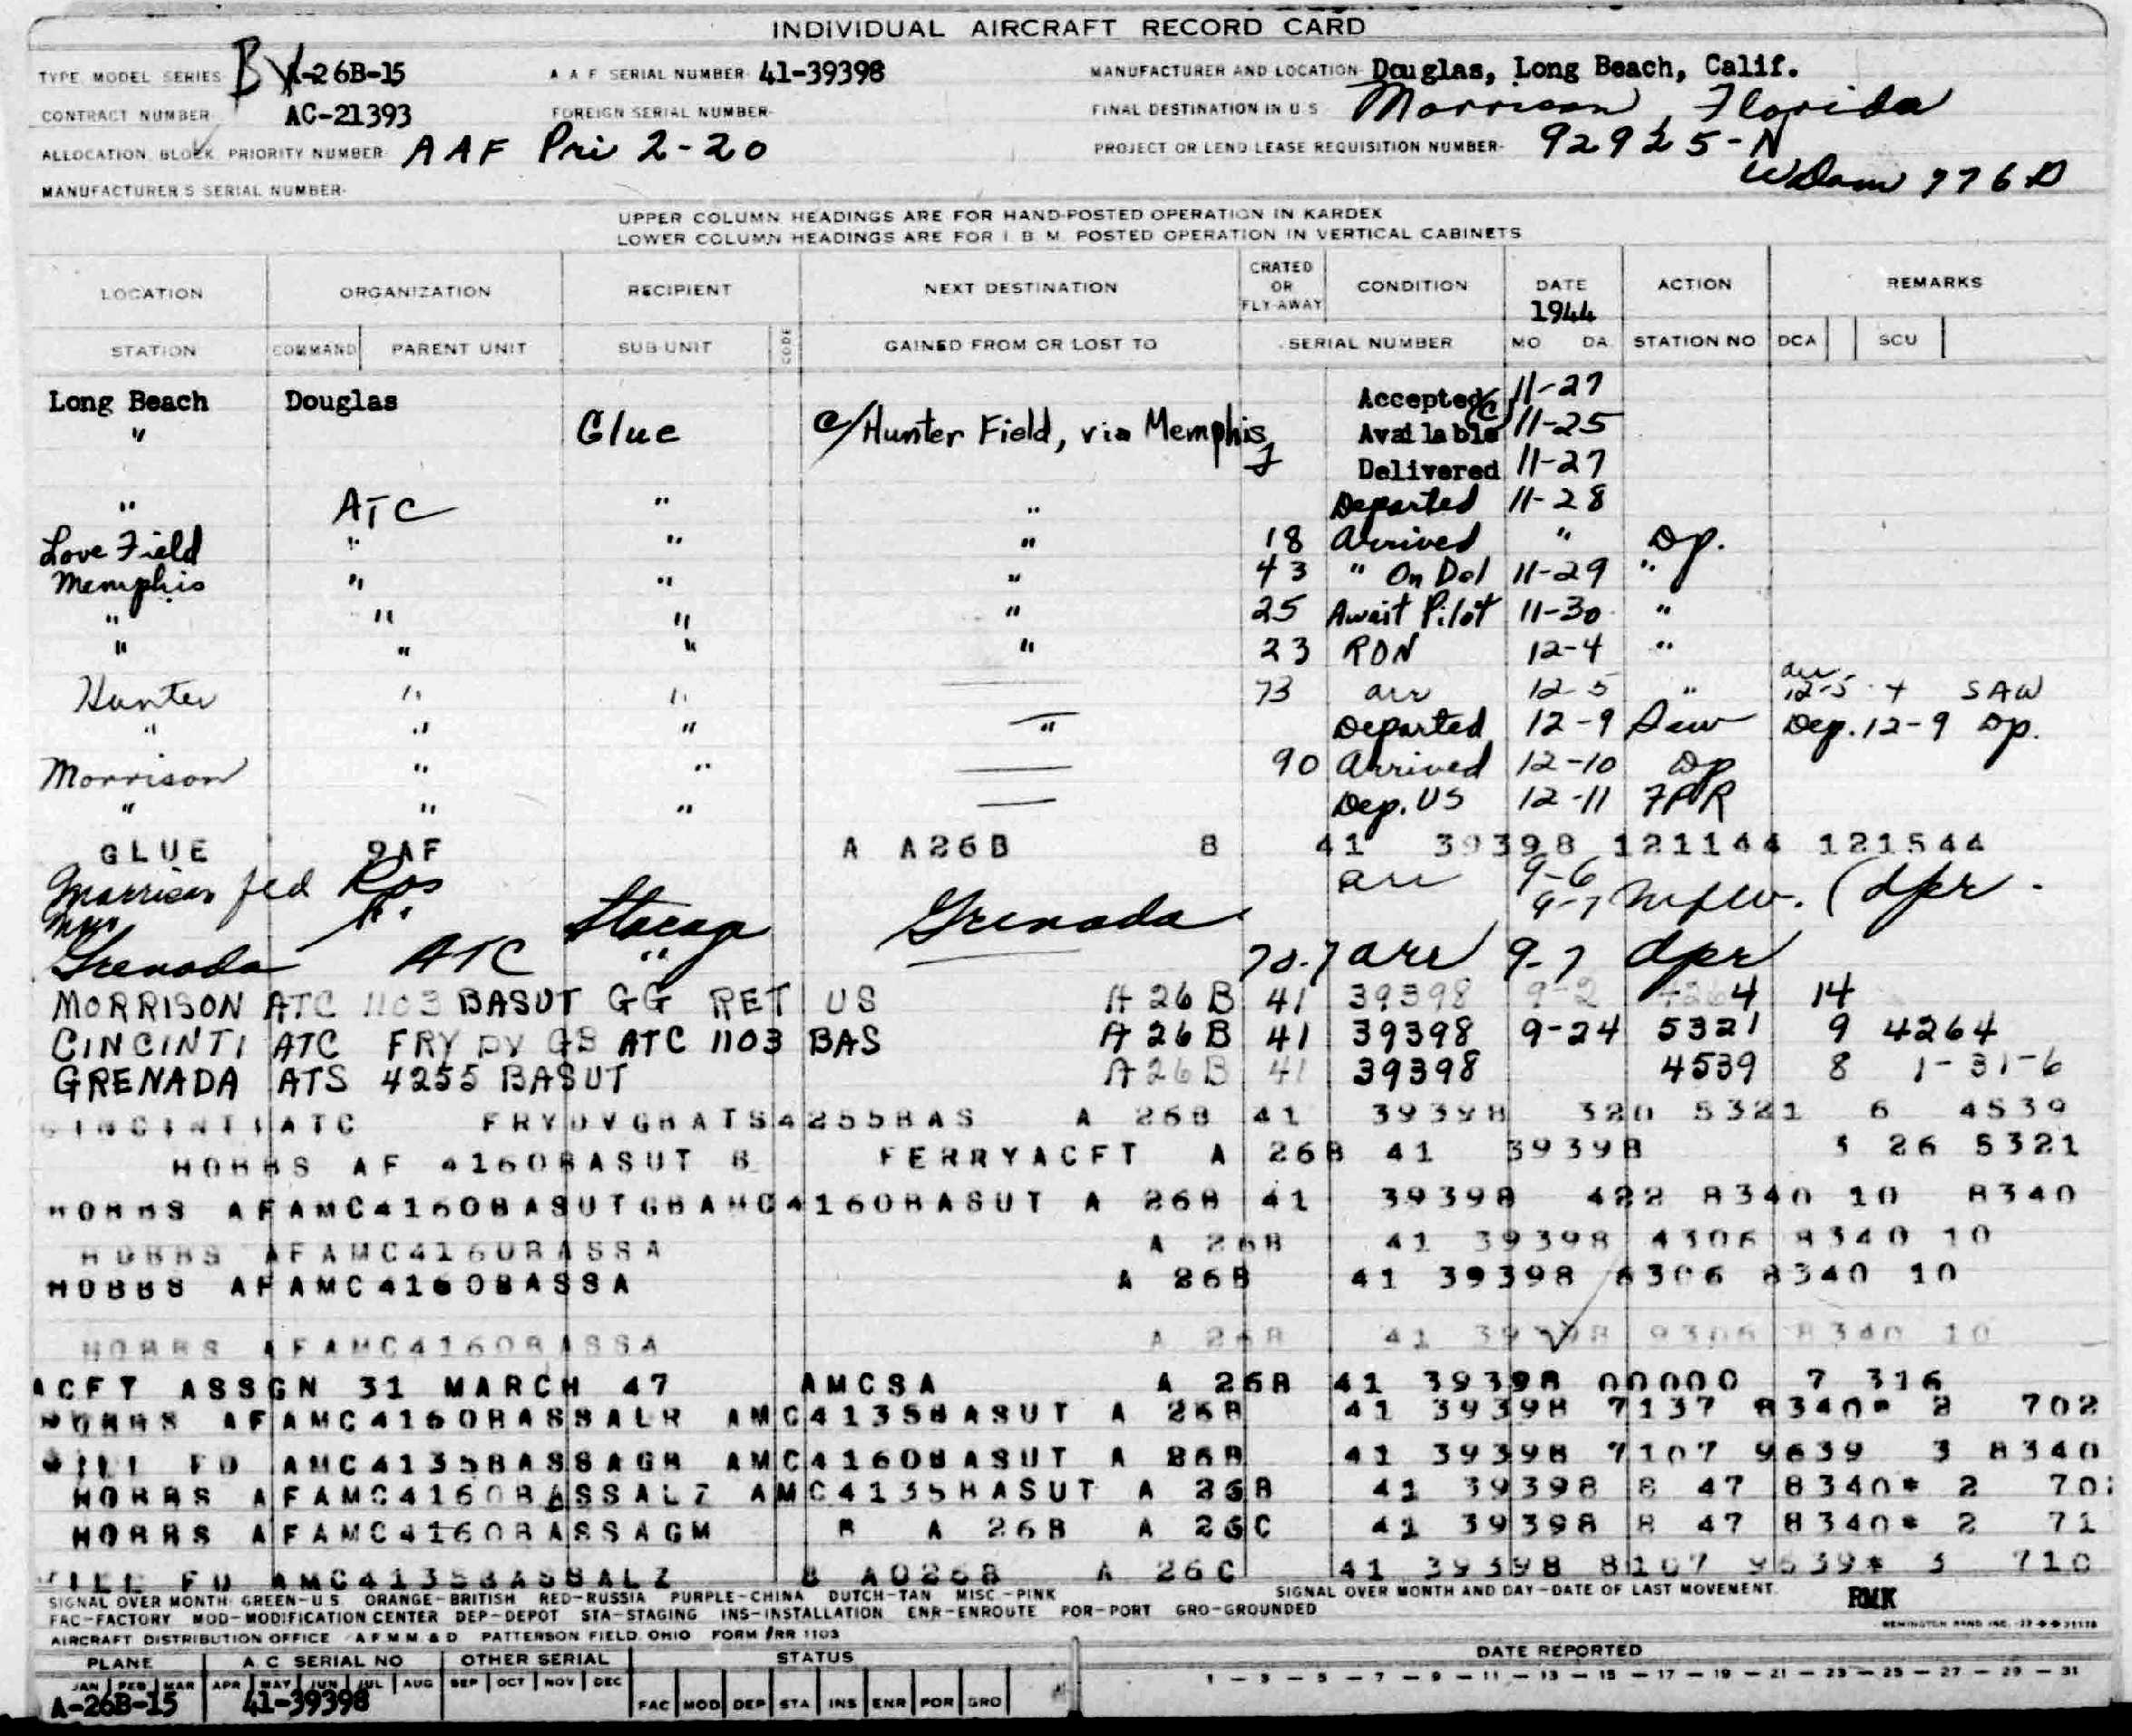 INDIVIDUAL AIRCRAFT RECORD CARD
TYPE MODEL SERIES B A-26B-15 A A F SERIAL NUMBER 41-39398 MANUFACTURER AND LOCATION Douglas, Long Beach, Calif.
CONTRACT NUMBER AC-21393 FOREIGN SERIAL NUMBER- FINAL DESTINATION IN U S Morrison, Florida
ALLOCATION BLOCK PRIORITY NUMBER AAF Pri 2-20 PROJECT OR LEND LEASE REQUISITION NUMBER- 92925-N
MANUFACTURER'S SERIAL NUMBER- 776D
UPPER COLUMN HEADINGS ARE FOR HAND-POSTED OPERATION IN KARDEX
LOWER COLUMN HEADINGS ARE FOR I B M POSTED OPERATION IN VERTICAL CABINETS
LOCATION ORGANIZATION RECIPIENT NEXT DESTINATION CRATED OR FLY-AWAY CONDITION DATE 1944 ACTION REMARKS
STATION COMMAND PARENT UNIT SUB-UNIT CODE GAINED FROM OR LOST TO SERIAL NUMBER MO DA STATION NO DCA SCU
Long Beach Douglas Accepted 11-27
" Glue c/Hunter Field, via Memphis Available 11-25
Delivered 11-27
" ATC " " Departed 11-28
Love Field " " " 18 Arrived " Dp.
Memphis " " " 43 " On Del 11-29 "
" " " " 25 Await Pilot 11-30 "
" " " " 23 RON 12-4 "
Hunter " " 73 arr 12-5 " arr 12-5 + SAW
" " " " Departed 12-9 Saw Dep. 12-9 Dp.
Morrison " " 90 Arrived 12-10 Dp
" " " Dep. US 12-11 FPR
GLUE 9AF A A26B 8 41 39398 121144 121544
Morrison fld arr 9-6
Grenada 9-7 (dpr.
Grenada ATC " 70.7 arr 9-7 dpr
MORRISON ATC 1103 BASUT GG RET US A 26 B 41 39398 9-2 4264 14
CINCINTI ATC FRY DV GB ATC 1103 BAS A 26 B 41 39398 9-24 5321 9 4264
GRENADA ATS 4255 BASUT A 26 B 41 39398 4539 8 1-31-6
CINCINTIATC FRYDVGBATS4255BAS A 26B 41 39398 320 5321 6 4539
HOBBS AF 4160BASUT B FERRYACFT A 26B 41 39398 3 26 5321
HOBBS AFAMC4160BASUTGBAMC4160BASUT A 26B 41 39398 422 8340 10 8340
HOBBS AFAMC4160BASSA A 26B 41 39398 4306 8340 10
HOBBS AFAMC4160BASSA A 26B 41 39398 6306 8340 10
HOBBS AFAMC4160BASSA A 26B 41 39398 9306 8340 10
ACFT ASSGN 31 MARCH 47 AMCSA A 26B 41 39398 00000 7 316
HOBBS AFAMC4160BASSALR AMC4135BASUT A 26B 41 39398 7137 8340* 2 702
FD AMC4135BASSAGB AMC4160BASUT A 26B 41 39398 7107 9639 3 8340
HOBBS AFAMC4160BASSALZ AMC4135BASUT A 26B 41 39398 8 47 8340* 2 70
HOBBS AFAMC4160BASSAGM B A 26B A 26C 41 39398 8 47 8340* 2 71
FD AMC4135BASSALZ B A026B A 26C 41 39398 8107 9639* 3 710
SIGNAL OVER MONTH GREEN-U.S. ORANGE-BRITISH RED-RUSSIA PURPLE-CHINA DUTCH-TAN MISC.-PINK SIGNAL OVER MONTH AND DAY-DATE OF LAST MOVEMENT. RMK
FAC-FACTORY MOD-MODIFICATION CENTER DEP-DEPOT STA-STAGING INS-INSTALLATION ENR-ENROUTE POR-PORT GRO-GROUNDED
AIRCRAFT DISTRIBUTION OFFICE A F M M & D PATTERSON FIELD OHIO FORM #RR 1103
PLANE A C SERIAL NO OTHER SERIAL STATUS DATE REPORTED
JAN FEB MAR APR MAY JUN JUL AUG SEP OCT NOV DEC 1-3-5-7-9-11-13-15-17-19-21-23-25-27-29-31
A-26B-15 41-39398 FAC MOD DEP STA INS ENR POR GRO